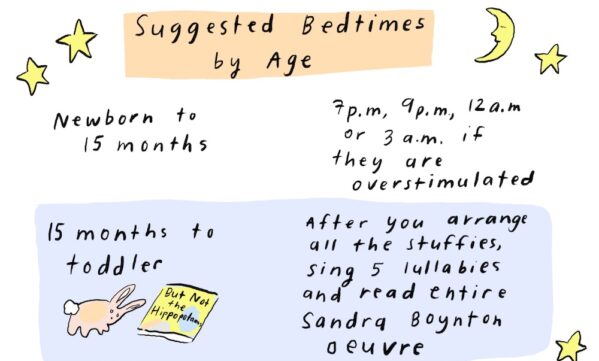 Suggested Bedtimes
by Age
Newborn to
15 months
7p.m, 9p.m, 12a.m
or 3 a.m. if
they are
overstimulated
15 months to
toddler
But Not
the
Hippopotamus
After you arrange
all the stuffies,
sing 5 lullabies
and read entire
Sandra Boynton
oeuvre